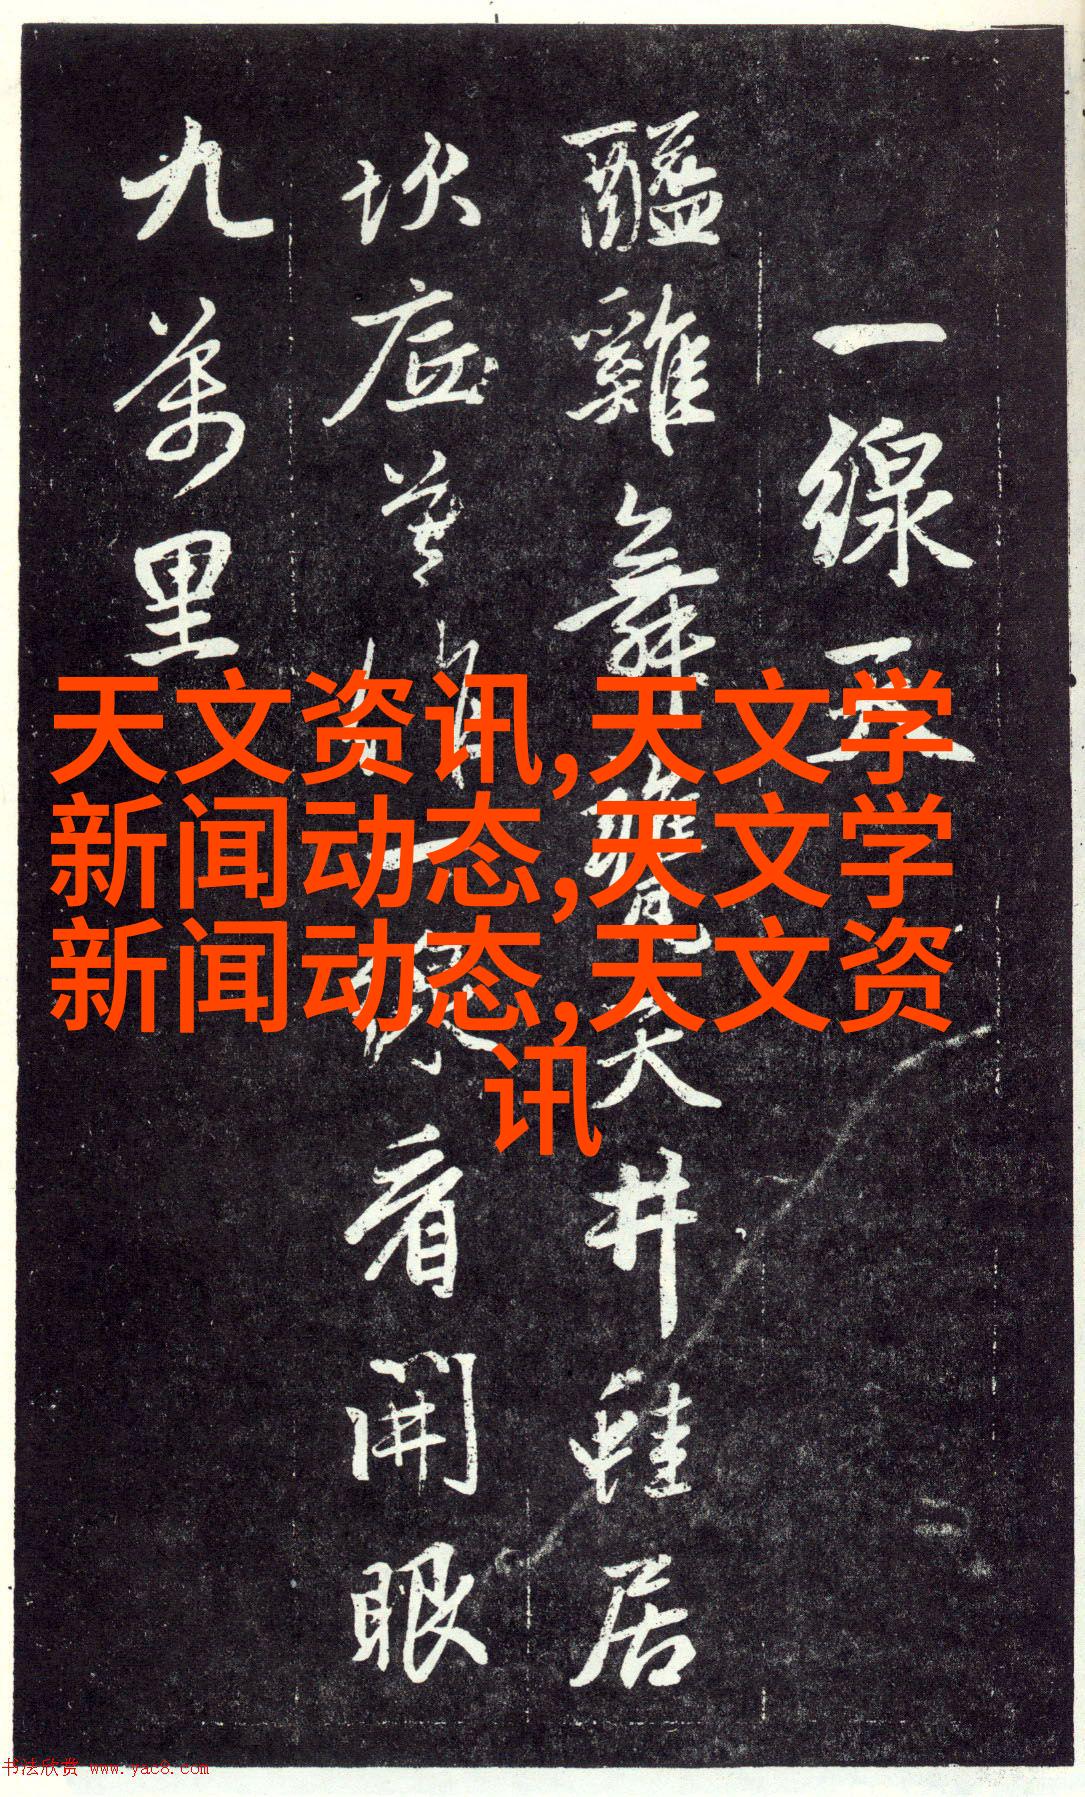 一線
醯雞舞甕天井蛙居
坎底莫一線看開眼
九萬里
天文资讯,天文学
新闻动态,天文学
新闻动态,天文资
讯
书法欣赏 www.yac8.com